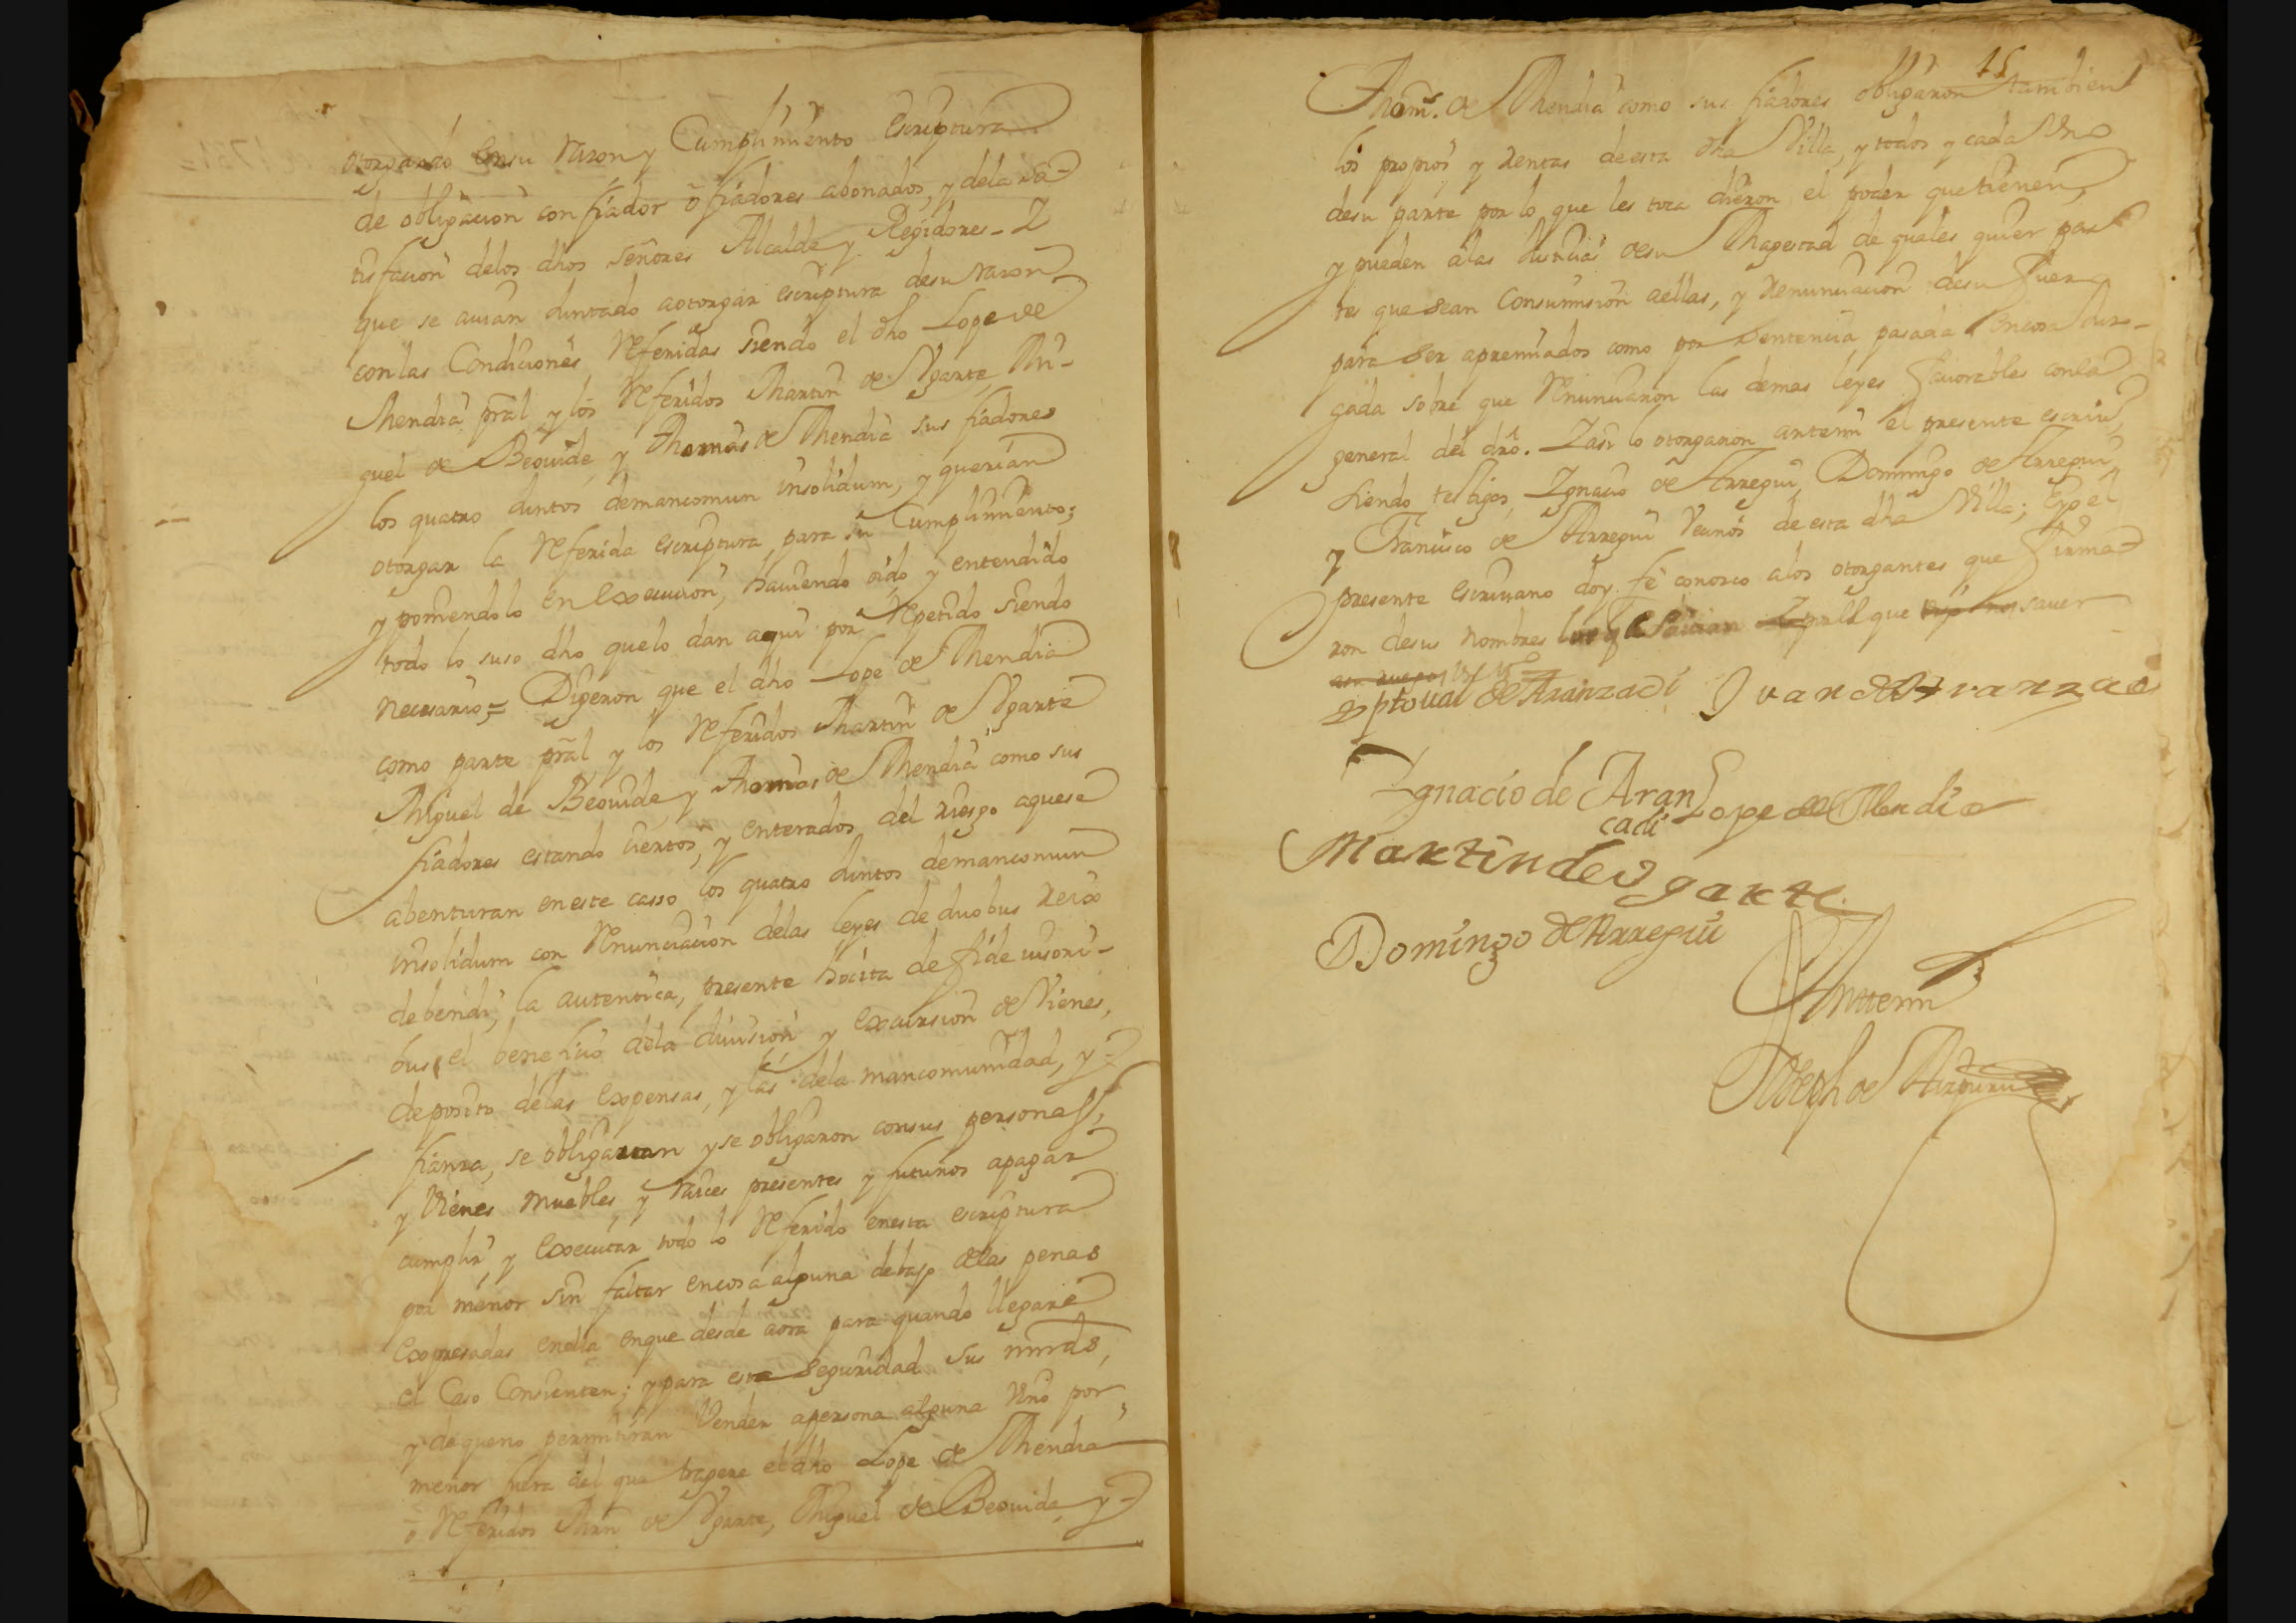 otorgando en su razon y Cumplimiento escriptura
de obligacion con fiador ò fiadores abonados, y dela sa-
tisfacion delos dhos señores Alcalde y Regidores - Y
que se auian Juntado aotorgar escriptura desu razon
conlas Condiciones Referidas siendo el dho Lope de
Mendia pral y los Referidos Martin de Vgarte, Mi-
guel de Beouide, y Thomas de Mendia sus fiadores
los quatro Juntos demancomun insolidum, y querian
otorgar la Referida escriptura para su Cumplimiento;
y poniendolo en execucion, hauiendo oido y entendido
todo lo suso dho quelo dan aqui por Repetido siendo
necesario = Digeron que el dho Lope de Mendia
como parte pral y los Referidos Martin de Vgarte
Miguel de Beouide, y Thomas de Mendia como sus
fiadores estando ciertos, y enterados del riesgo aquese
abenturan eneste casso los quatro Juntos demancomun
insolidum con Renunciacion delas leyes de duobus reix
debendi, la autentica, presente hocita de fide iusori-
bus, el beneficio dela diuision y excursion de Vienes,
deposito delas expensas, y las dela mancomunidad, y
fianza, se obligauan y se obligaron consus personass,
y Vienes muebles, y raices presentes y futuros apagar
cumplir y executar todo lo Referido enesta escriptura
por menor sin faltar encosa alguna debajo delas penas
expresadas enella enque desde aora para quando llegare
el Caso Consienten; y para esta seguridad sus mrds,
y de que no permitiran Vender apersona alguna Vino por
menor fuera del que tragere el dho Lope de Mendia
ò Referidos Mrn de Vgarte, Miguel de Beouide, y
15
Thoms. de Mendia como sus fiadores obligaron tambien
los propios y rentas deesta dha Villa, y todos y cada Uno
desu parte por lo que les toca dieron el poder quetienen,
y pueden alas Justicias desu Magestad de quales quier par
tes que sean Consumision aellas, y Renunciacion desu fuero
para ser apremiados como por sentencia pasada encosa Juz-
gada sobre que Renunciaron las demas leyes fauorables conla
general del dro. Y asi lo otorgaron antemi el presente escriuo,
siendo testigos, Ygnacio de Arregui, Domingo de Arregui
y Francisco de Arregui Vecinos de esta dha Villa; Eyo el
presente escriuano doy fe conozco alos otorgantes que firma
ron desus nombres los q sauian que sauer
xptoual de Aranzadi Juan de Aranzadi
Ygnacio de Aran
cadi Lope de Mendia
Martin de Vgarte
Domingo de Arregui
Antemi
Joseph de Aizpuru